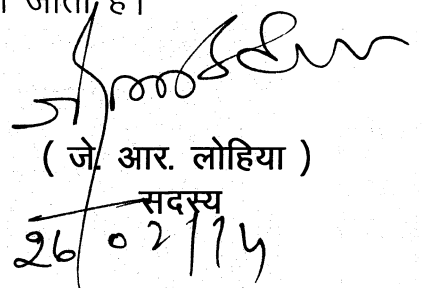 जाता है।
( जे. आर. लोहिया )
सदस्य
26/02/14